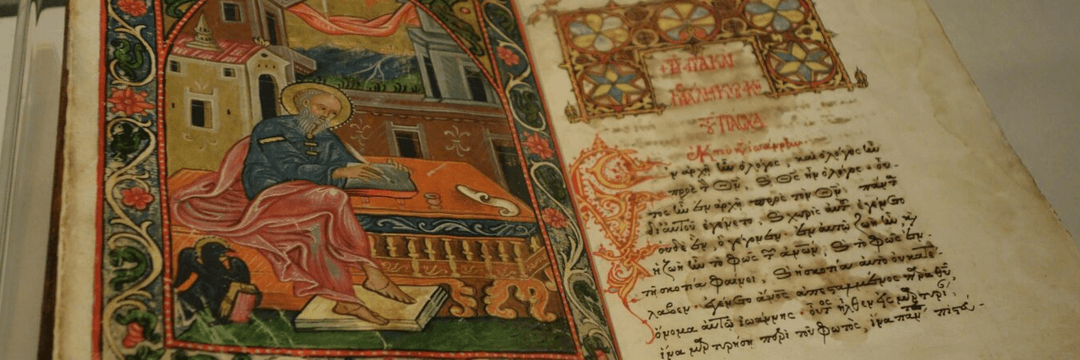 ΤΟΥ ΠΑΣΧΑ
ν ἀρχῇ ἦν ὁ λόγος, καὶ ὁ λόγος ἦν
πρὸς τὸν Θν̅. καὶ Θς̅ ἦν ὁ λόγος. οὗ-
τος ἦν ἐν ἀρχῇ πρὸς τὸν Θν̅. πάντ
δι' αὐτοῦ ἐγένετο. καὶ χωρὶς αὐτοῦ ἐγένετο
οὐδὲ ἕν, ὃ γέγονεν. ἐν αὐτῷ ζωὴ ἦν καὶ
ἡ ζωὴ ἦν τὸ φῶς τ ἀνων̅. καὶ τὸ φῶς ἐν
τῇ σκοτία φαίνει, καὶ ἡ σκοτία αὐτὸ οὐ κατέ-
λαβεν. ἐγένετο ἄνος̅ ἀπεσταλμένος παρὰ θυ̅,
ὄνομα αὐτῷ ἰωάννης. οὗτος ἦλθεν εἰς μαρτυρί
ἵνα μαρτυρήση περὶ τοῦ φωτός, ἵνα παν πιστεύ